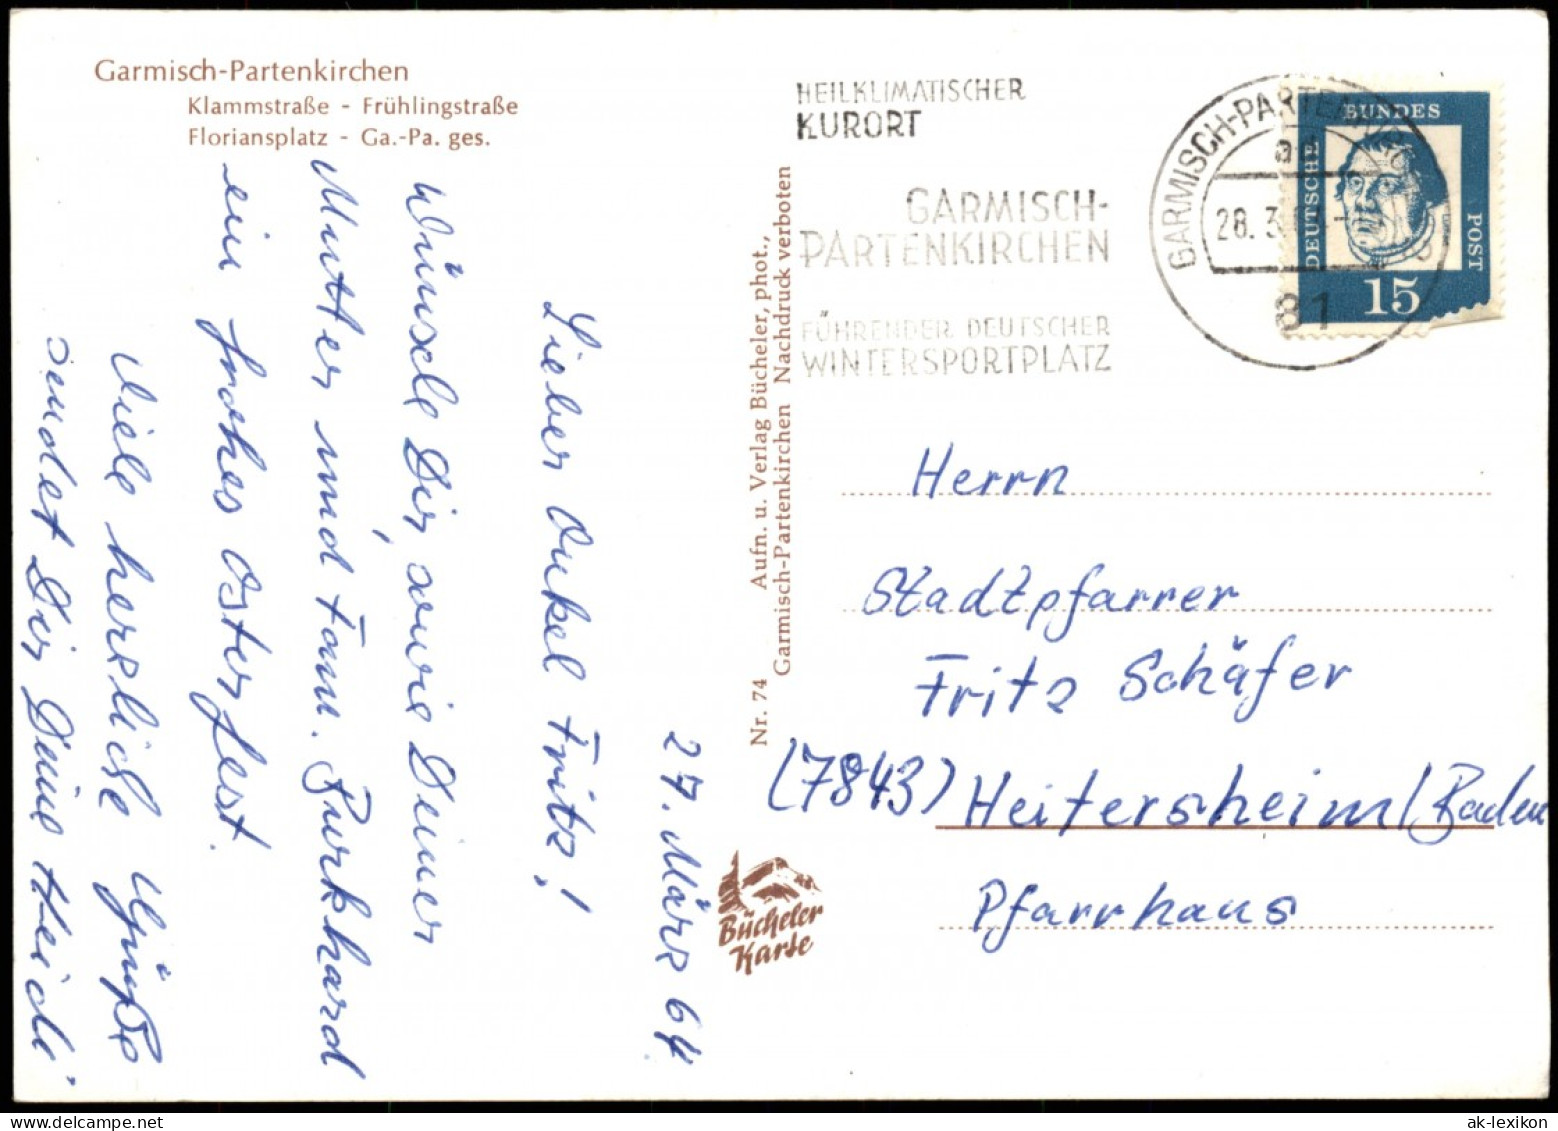 Garmisch-Partenkirchen
Klammstraße - Frühlingstraße
Floriansplatz - Ga.-Pa. ges.
27. März 64
Lieber Onkel Fritz!
Wünsche Dir, sowie Deiner
Mutter und Fam. Burkhard
ein frohes Osterfest.
Viele herzliche Grüße
sendet Dir Deine Heidi
Nr. 74 Aufn. u. Verlag Bücheler, phot.,
Garmisch-Partenkirchen Nachdruck verboten
Bücheler
Karte
HEILKLIMATISCHER
KURORT
GARMISCH-
PARTENKIRCHEN
FÜHRENDER DEUTSCHER
WINTERSPORTPLATZ
GARMISCH-PARTENKIRCHEN
28. 3. 64
81
DEUTSCHE
BUNDES
POST
15
Herrn
Stadtpfarrer
Fritz Schäfer
(7843) Heitersheim/Baden
Pfarrhaus
ak-lexikon